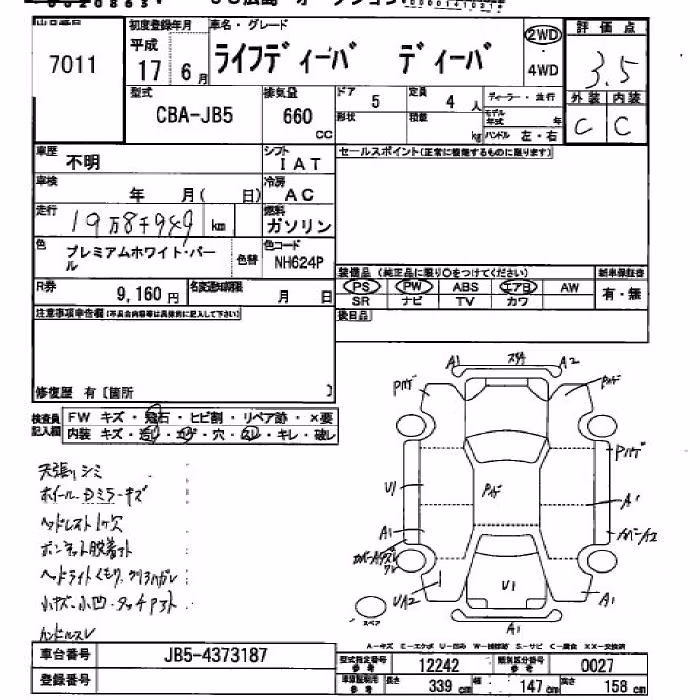 7011
初度登録年月
平成
17 6月
車名・グレード
ライフディーバ ディーバ
2WD
4WD
評価点
3.5
外装 内装
C C
型式
CBA-JB5
排気量
660 cc
ドア
5
定員
4 人
形状
積載
kg
ディーラー・並行
モデル年式 年
ハンドル 左・右
車歴
不明
シフト
IAT
セールスポイント(正常に機能するものに限ります)
車検
年 月( 日)
冷房
AC
走行
19万8千949 km
燃料
ガソリン
色
プレミアムホワイト・パール
色替
色コード
NH624P
装備品 (純正品に限り○をつけてください)
新車保証書
PS PW ABS エアB AW
有・無
SR ナビ TV カワ
R券
9,160 円
名変通知期限
月 日
後日品
注意事項申告欄(不具合内容等は具体的に記入して下さい)
修復歴 有 [箇所 ]
検査員記入欄
FW キズ・飛石・ヒビ割・リペア跡・×要
内装 キズ・汚れ・コゲ・穴・スレ・キレ・破レ
天張りシミ
ホイール.Dミラーキズ
ヘッドレスト1ケ欠
ボンネット脱着アト
ヘッドライトくもり.クリアハガレ
小キズ・小凹・タッチアト
ハンドルスレ
A1
A2
Pハゲ
Pハゲ
Pハゲ
U1
Pハゲ
A1
A1
UA2
U1
A1
A1
スペア
A-キズ E-エクボ U-凹み W-補修跡 S-サビ C-腐食 XX-交換済
車台番号
JB5-4373187
登録番号
型式指定番号 参考
12242
類別区分番号 参考
0027
車庫証明用 参考
長さ 339 cm
幅 147 cm
高さ 158 cm